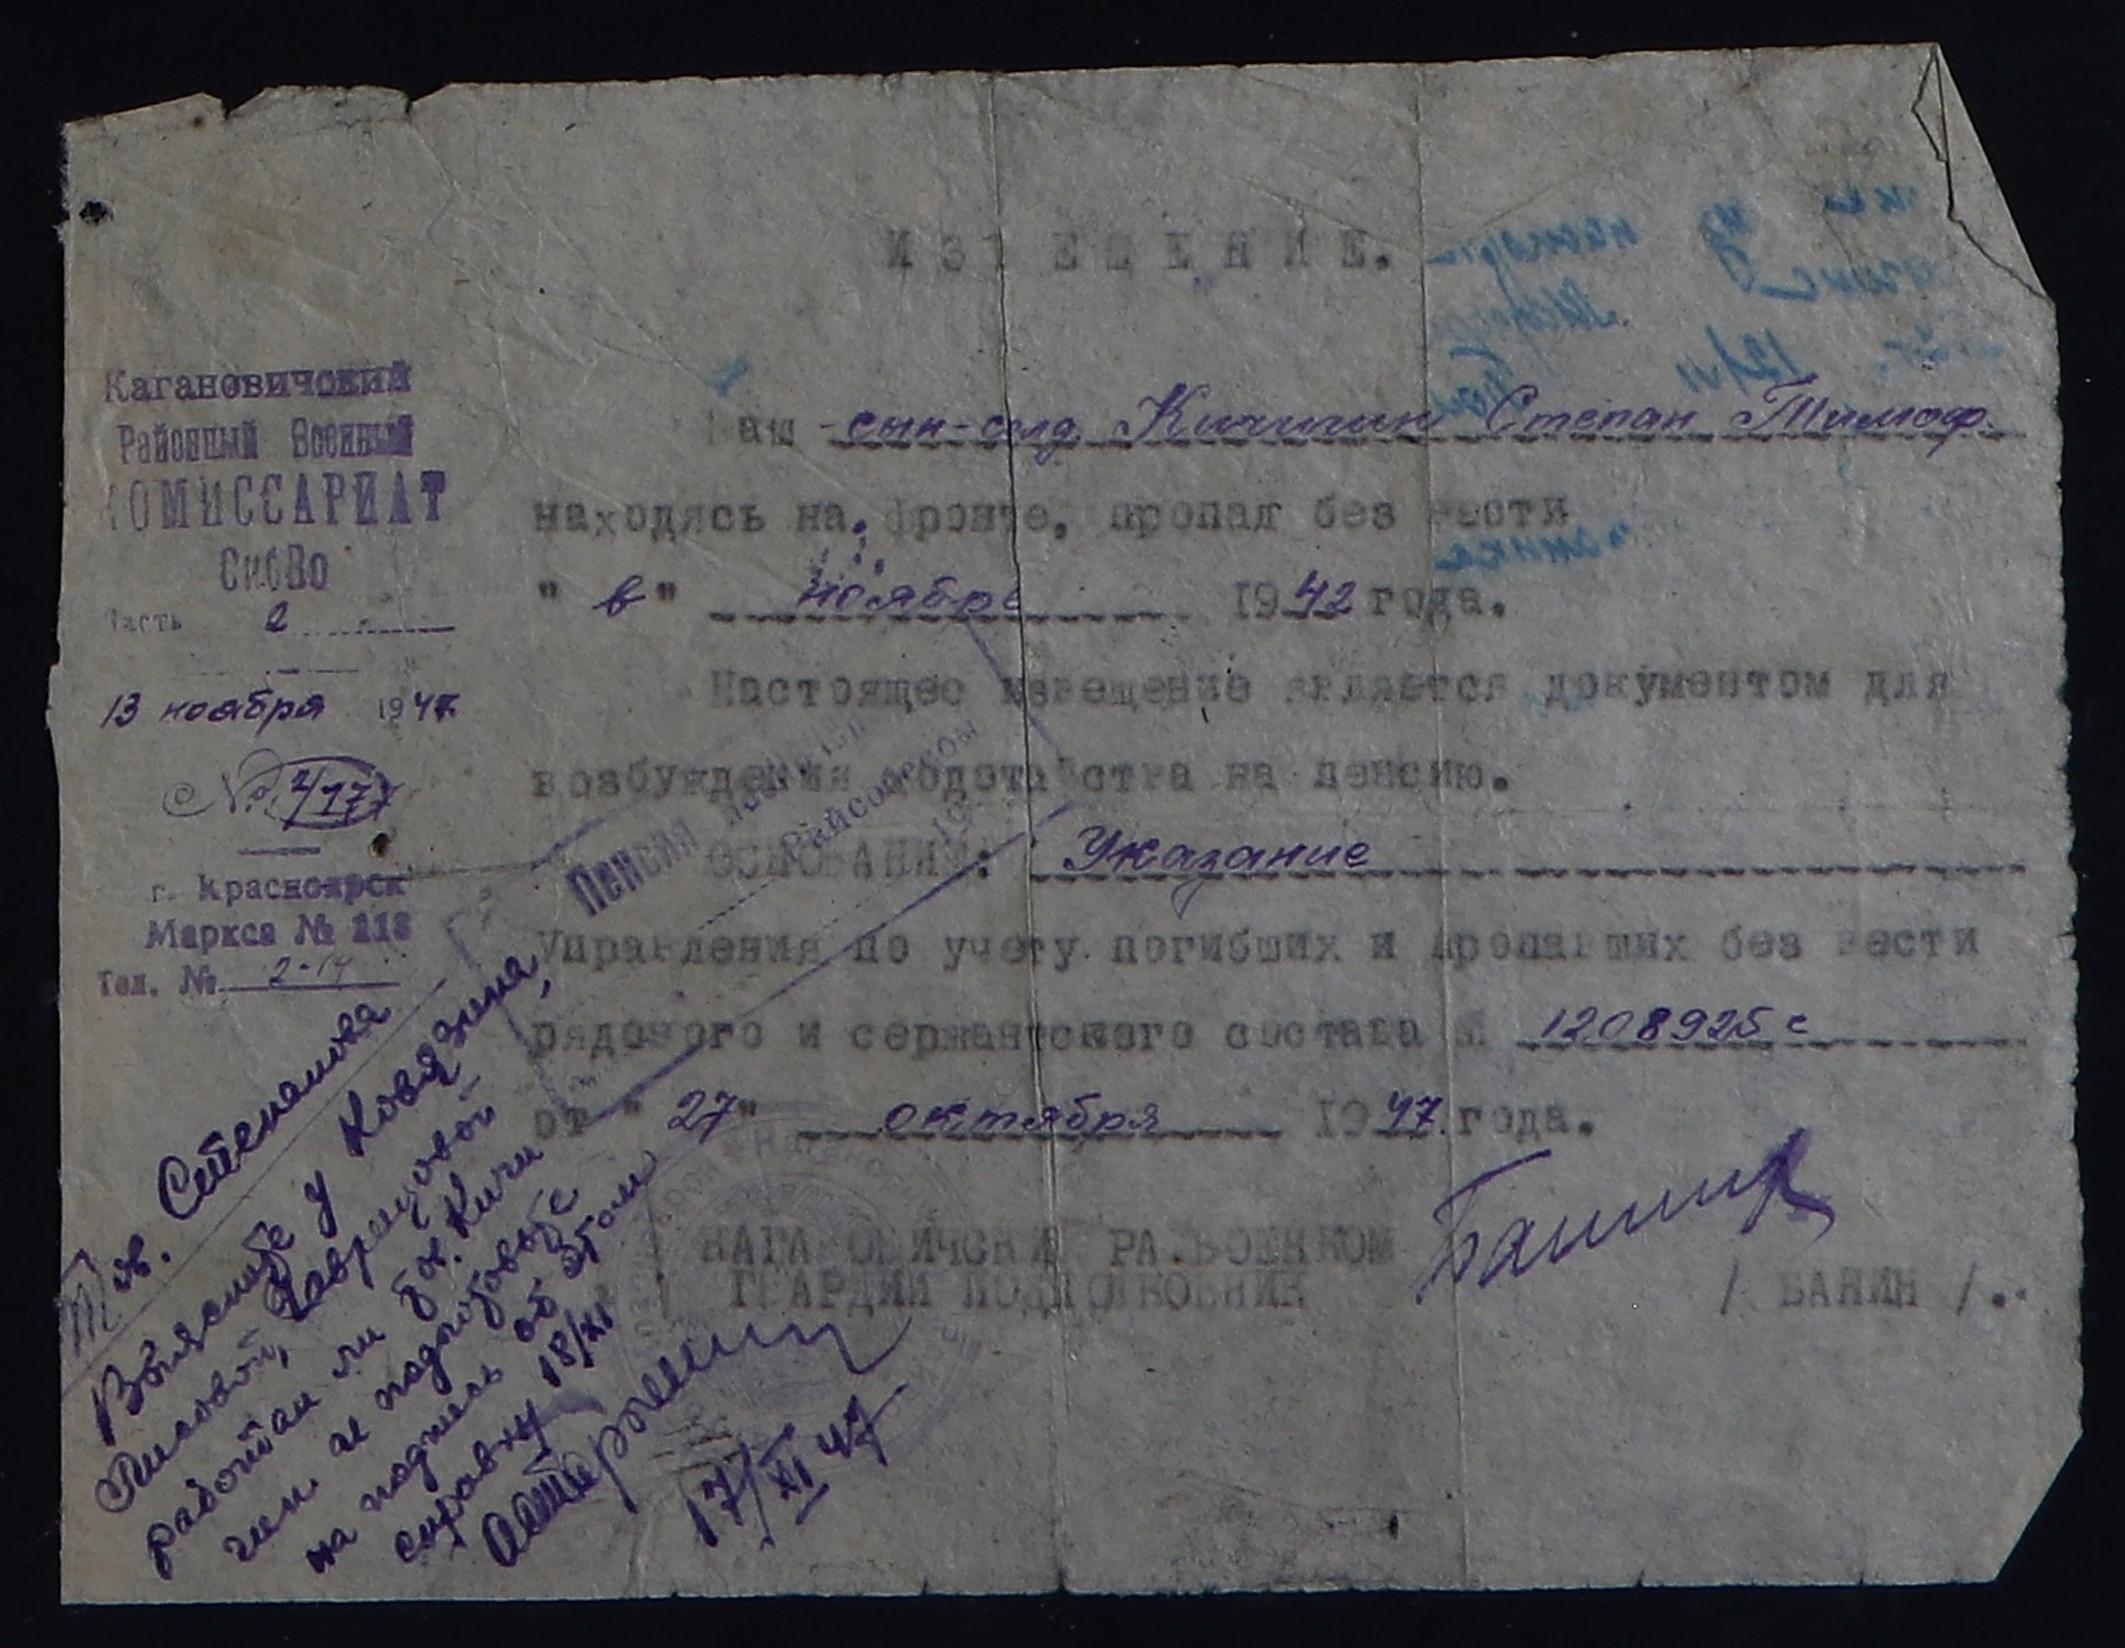 ИЗВЕЩЕНИЕ.
Кагановичский
Районный Военный
КОМИССАРИАТ
СибВо
Часть 2
13 ноября 1947
№ 2/177
г. Красноярск
Маркса № 118
Тел. № 2-14
Ваш сын-солд Кичигин Степан Тимоф.
находясь на фронте, пропал без вести
" в " ноябре 1942 года.
Настоящее извещение является документом для
возбуждения ходатайства на пенсию.
ОСНОВАНИЕ: Указание
Управления по учету погибших и пропавших без вести
рядового и сержантского состава № 1208925с
от " 27 " октября 1947 года.
КАГАНОВИЧСКИЙ РАЙВОЕНКОМ
ГВАРДИИ ПОДПОЛКОВНИК
Банин
/ БАНИН /.
Пенсия
Райсобесом
19
Тов. Степанова
Выясните у Ковязина,
Лисовой,
работал ли бог. Кичи
гин и подготовьте
на подпись об этом
справку 18/XI
17/XI 47